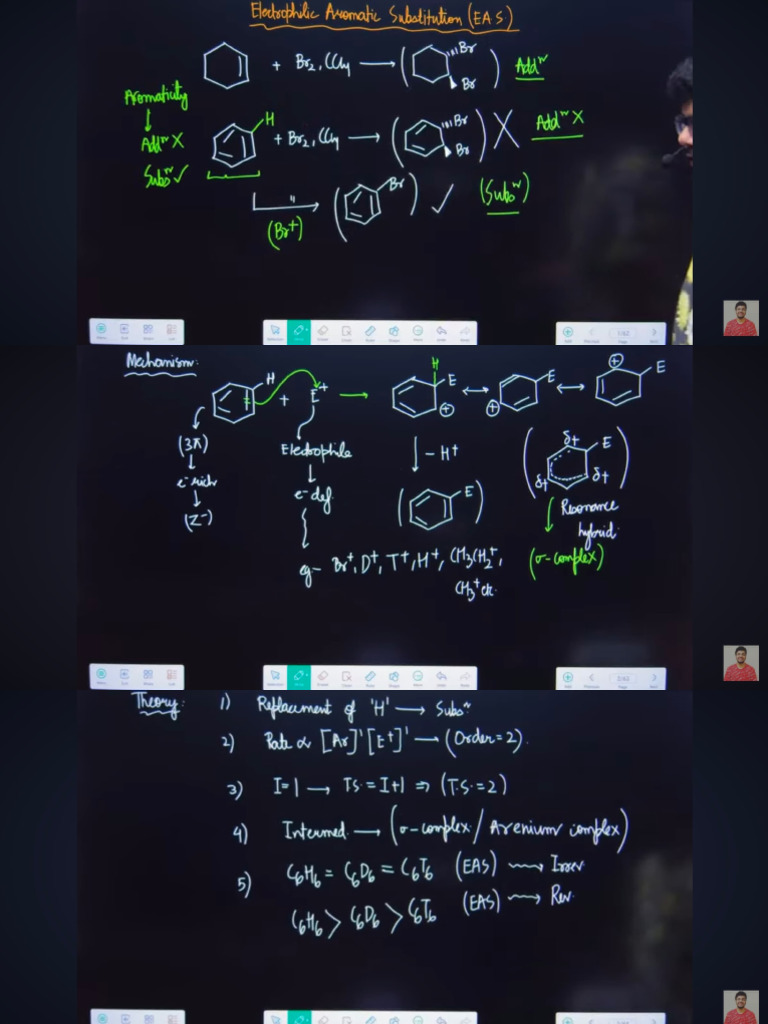 Electrophilic Aromatic Substitution (EAS)
+ Br2, CCl4 → ( Br Br ) Addⁿ
Aromaticity
↓
Addⁿ X
Subsⁿ ✓
H + Br2, CCl4 → ( Br Br ) X Addⁿ X
" (Br+) → ( Br ) ✓ (Subsⁿ)
Mechanism:
H + E+ → H E + ↔ E + ↔ + E
(3π)
↓
e⁻ rich
↓
(Z⁻)
Electrophile
↓
e⁻ def.
eg- Br+, D+, T+, H+, CH3CH2+,
CH3+ etc.
↓ -H+
( E )
( δ+ E δ+ δ+ )
Resonance
hybrid
(σ-complex)
Theory:
1) Replacement of 'H' → Subsⁿ
2) Rate ∝ [Ar]¹ [E+]¹ → (Order = 2).
3) I=1 → T.S. = I+1 ⇒ (T.S. = 2)
4) Intermed. → (σ-complex / Arenium complex)
5) C6H6 = C6D6 = C6T6 (EAS) → Irrev
C6H6 > C6D6 > C6T6 (EAS) → Rev